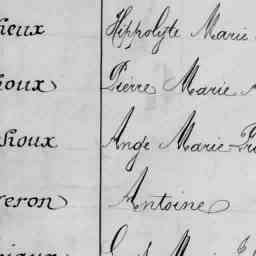 ieux Hippolyte Marie
ioux Pierre Marie
hioux Ange Marie
eron Antoine